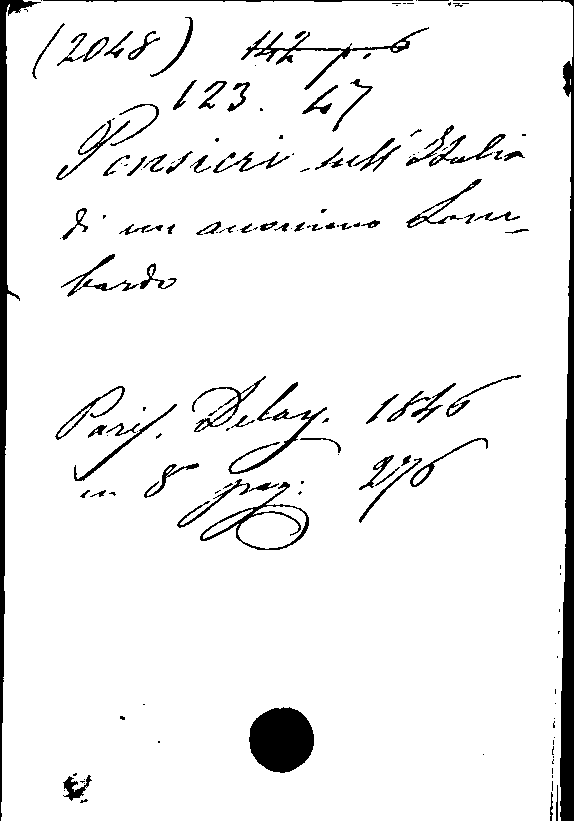 (2048) 142 p. 6
123. 47
Pensieri sull' Italia
di un anonimo Lom-
bardo
Paris. Delay. 1846
in 8° pag: 276